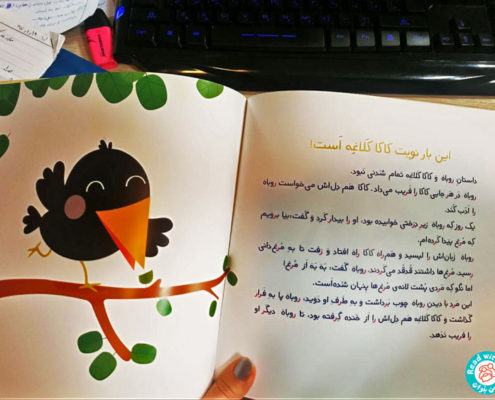 این بار نوبت کاکا کَلاغِه اَست!
داستانِ روباه و کاکا کَلاغِه تَمام شُدَنی نَبود.
روباه دَر هَر جایی کاکا را فَریب می‌داد. کاکا هَم دِل‌اَش می‌خواست روباه
را اَدَب کُنَد.
یِک روز که روباه زیرِ دِرَختی خوابیده بود، او را بیدار کَرد و گُفت: بیا بِرَویم
که مُرغ پِیدا کَرده‌اَم.
روباه زَبان‌اَش را لیسید و هَمراهِ کاکا راه اُفتاد و رَفت تا بِه مُرغ‌دانی
رِسید. مُرغ‌ها داشتَند قُدقُد می‌کَردَند. روباه گُفت: بَه بَه اَز مُرغ!
اَما نَگو که مَردی پُشتِ لانه‌ی مُرغ‌ها پِنهان شُده‌اَست.
این مَرد با دیدَنِ روباه چوب بَرداشت و بِه طَرَفِ او دَوید. روباه پا بِه فَرار
گُذاشت و کاکا کَلاغِه هَم دِل‌اَش را اَز خَنده گِرِفته بود، تا روباه دیگَر او
را فَریب نَدَهَد.
Read wit